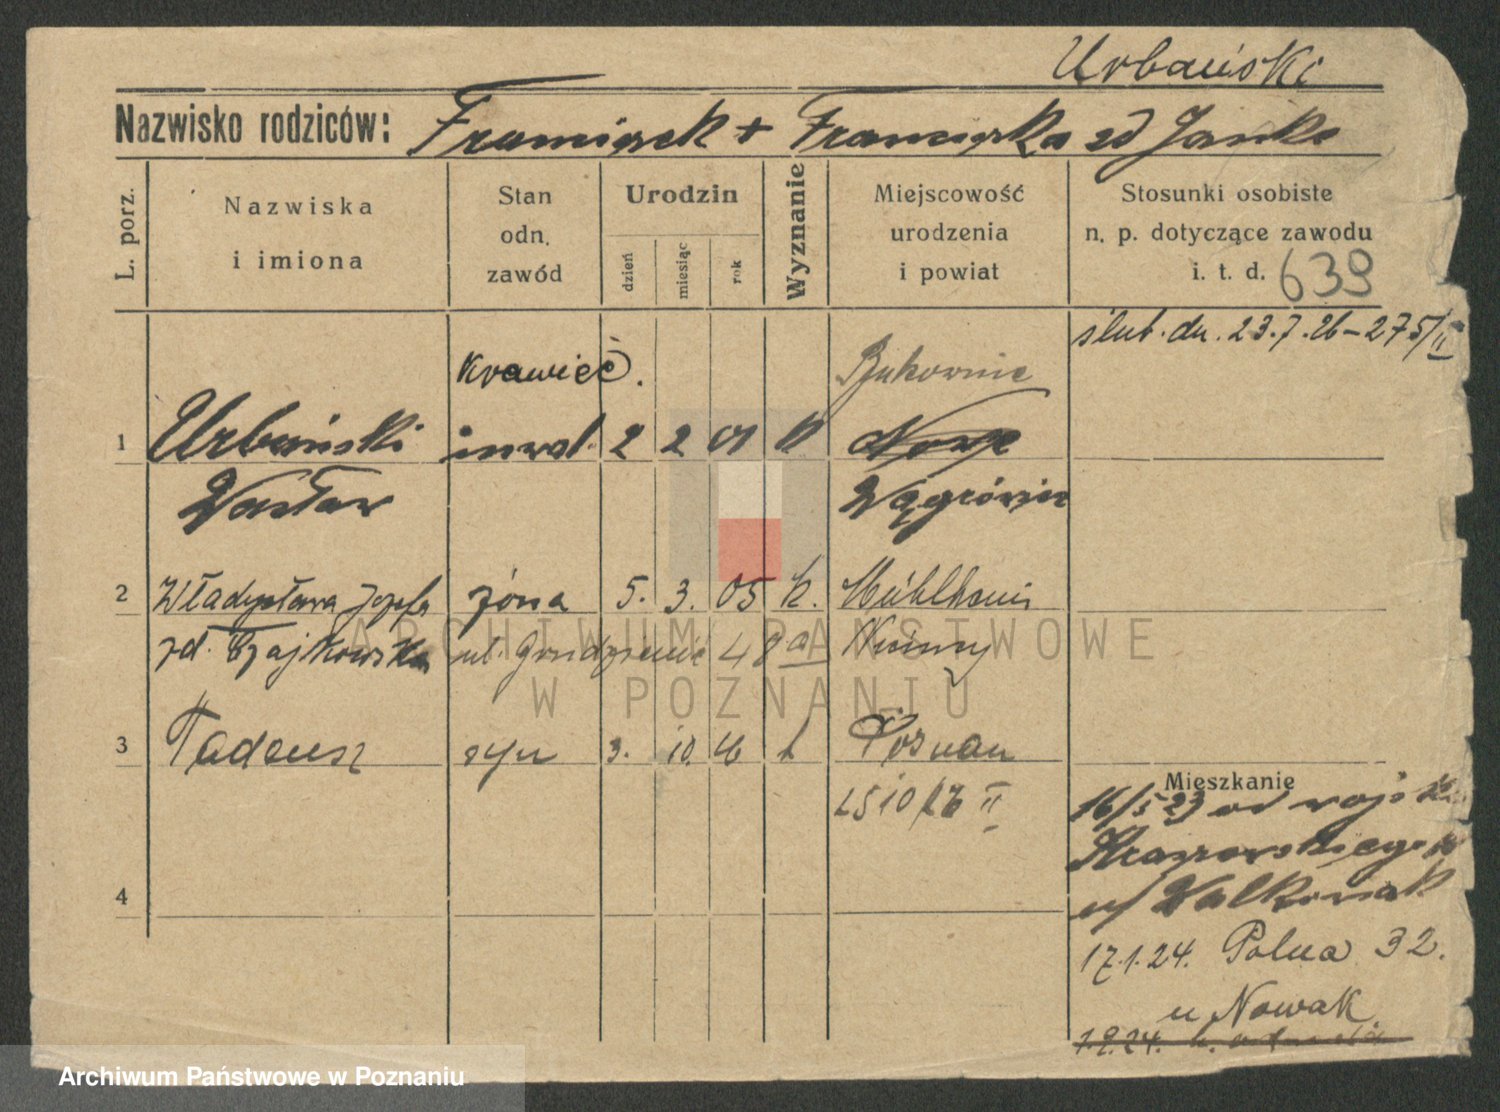 Urbański
Nazwisko rodziców: Franciszek + Franciszka zd Janke
L. porz.
Nazwiska
i imiona
Stan
odn.
zawód
Urodzin
dzień
miesiąc
rok
Wyznanie
Miejscowość
urodzenia
i powiat
Stosunki osobiste
n. p. dotyczące zawodu
i. t. d. 639
ślub. dn. 23.7.26 – 275/II
krawiec.
1 Urbański inwal. 2 2 01 k
Wacław Wągrówiec
2 Władysława Józefa żona 5. 3. 05 k.
zd. Czajkowska ul. 48a
3 Tadeusz syn 3. 10. 26 k Poznań
2510/26 II
Mieszkanie
16/5 23 od
Kraszewskiego
4
u/ Walkowiak
17.1.24. Polna 32.
u Nowak
1.9.24.
ARCHIWUM PAŃSTWOWE
W POZNANIU
Archiwum Państwowe w Poznaniu